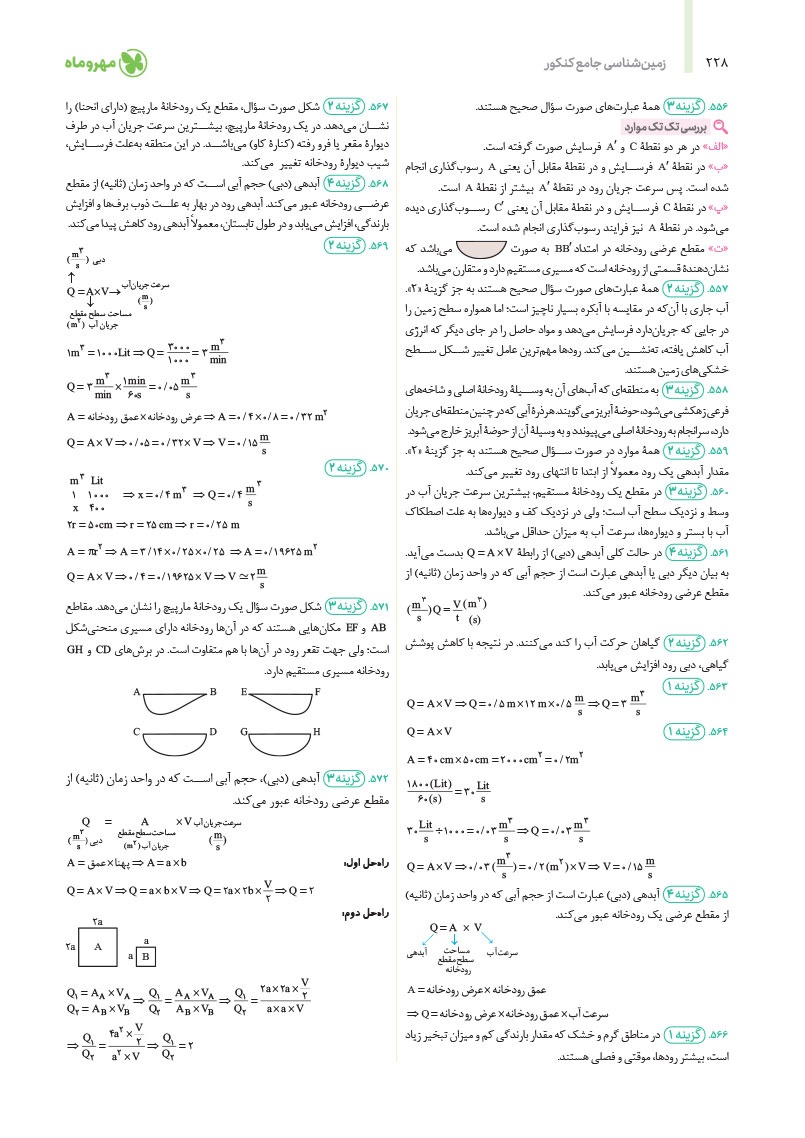 ۲۲۸
زمین‌شناسی جامع کنکور
مهروماه
۵۵۶. گزینه ۳ همهٔ عبارت‌های صورت سؤال صحیح هستند.
بررسی تک تک موارد
«الف» در هر دو نقطهٔ C و A′ فرسایش صورت گرفته است.
«ب» در نقطهٔ A′ فرسـایش و در نقطهٔ مقابل آن یعنی A رسوب‌گذاری انجام
شده است. پس سرعت جریان رود در نقطهٔ A′ بیشتر از نقطهٔ A است.
«پ» در نقطهٔ C فرسـایش و در نقطهٔ مقابل آن یعنی C′ رسـوب‌گذاری دیده
می‌شود. در نقطهٔ A نیز فرایند رسوب‌گذاری انجام شده است.
«ت» مقطع عرضی رودخانه در امتداد BB′ به صورت می‌باشد که
نشان‌دهندهٔ قسمتی از رودخانه است که مسیری مستقیم دارد و متقارن می‌باشد.
۵۵۷. گزینه ۲ همهٔ عبارت‌های صورت سؤال صحیح هستند به جز گزینهٔ «۲».
آب جاری با آن‌که در مقایسه با آبکره بسیار ناچیز است؛ اما همواره سطح زمین را
در جایی که جریان‌دارد فرسایش می‌دهد و مواد حاصل را در جای دیگر که انرژی
آب کاهش یافته، ته‌نشـین می‌کند. رودها مهم‌ترین عامل تغییر شـکل سـطح
خشکی‌های زمین هستند.
۵۵۸. گزینه ۳ به منطقه‌ای که آب‌های آن به وسـیلهٔ رودخانهٔ اصلی و شاخه‌های
فرعی زهکشی می‌شود، حوضهٔ آبریز می‌گویند. هر ذرهٔ آبی که در چنین منطقه‌ای جریان
دارد، سرانجام به رودخانهٔ اصلی می‌پیوندد و به وسیلهٔ آن از حوضهٔ آبریز خارج می‌شود.
۵۵۹. گزینه ۲ همهٔ موارد در صورت سـؤال صحیح هستند به جز گزینهٔ «۲».
مقدار آبدهی یک رود معمولاً از ابتدا تا انتهای رود تغییر می‌کند.
۵۶۰. گزینه ۳ در مقطع یک رودخانهٔ مستقیم، بیشترین سرعت جریان آب در
وسط و نزدیک سطح آب است؛ ولی در نزدیک کف و دیواره‌ها به علت اصطکاک
آب با بستر و دیواره‌ها، سرعت آب به میزان حداقل می‌باشد.
۵۶۱. گزینه ۴ در حالت کلی آبدهی (دبی) از رابطهٔ Q = A×V بدست می‌آید.
به بیان دیگر دبی یا آبدهی عبارت است از حجم آبی که در واحد زمان (ثانیه) از
مقطع عرضی رودخانه عبور می‌کند.
(m³/s) Q = V/t (m³)/(s)
۵۶۲. گزینه ۲ گیاهان حرکت آب را کند می‌کنند. در نتیجه با کاهش پوشش
گیاهی، دبی رود افزایش می‌یابد.
۵۶۳. گزینه ۱
Q = A×V ⇒ Q = ۰/۵ m×۱۲ m×۰/۵ m/s ⇒ Q = ۳ m³/s
۵۶۴. گزینه ۱
Q = A×V
A = ۴۰cm×۵۰cm = ۲۰۰۰cm² = ۰/۲m²
۱۸۰۰(Lit)/۶۰(s) = ۳۰ Lit/s
۳۰ Lit/s ÷۱۰۰۰ = ۰/۰۳ m³/s ⇒ Q = ۰/۰۳ m³/s
Q = A×V ⇒ ۰/۰۳ (m³/s) = ۰/۲(m²)×V ⇒ V = ۰/۱۵ m/s
۵۶۵. گزینه ۴ آبدهی (دبی) عبارت است از حجم آبی که در واحد زمان (ثانیه)
از مقطع عرضی یک رودخانه عبور می‌کند.
Q = A × V
آبدهی مساحت سطح مقطع رودخانه سرعت آب
A = عمق رودخانه×عرض رودخانه
⇒ Q = سرعت آب×عمق رودخانه×عرض رودخانه
۵۶۶. گزینه ۱ در مناطق گرم و خشک که مقدار بارندگی کم و میزان تبخیر زیاد
است، بیشتر رودها، موقتی و فصلی هستند.
۵۶۷. گزینه ۲ شکل صورت سؤال، مقطع یک رودخانهٔ مارپیچ (دارای انحنا) را
نشـان می‌دهد. در یک رودخانهٔ مارپیچ، بیشـترین سرعت جریان آب در طرف
دیوارهٔ مقعر یا فرو رفته (کنارهٔ کاو) می‌باشـد. در این منطقه به‌علت فرسـایش،
شیب دیوارهٔ رودخانه تغییر می‌کند.
۵۶۸. گزینه ۴ آبدهی (دبی) حجم آبی اسـت که در واحد زمان (ثانیه) از مقطع
عرضـی رودخانه عبور می‌کند. آبدهی رود در بهار به علـت ذوب برف‌ها و افزایش
بارندگی، افزایش می‌یابد و در طول تابستان، معمولاً آبدهی رود کاهش پیدا می‌کند.
۵۶۹. گزینه ۲
دبی (m³/s)
Q = A×V → سرعت جریان آب (m/s)
مساحت سطح مقطع
جریان آب (m²)
۱m³ = ۱۰۰۰Lit ⇒ Q = ۳۰۰۰/۱۰۰۰ = ۳ m³/min
Q = ۳ m³/min × ۱min/۶۰s = ۰/۰۵ m³/s
A = عرض رودخانه×عمق رودخانه ⇒ A = ۰/۴×۰/۸ = ۰/۳۲ m²
Q = A×V ⇒ ۰/۰۵ = ۰/۳۲×V ⇒ V = ۰/۱۵ m/s
۵۷۰. گزینه ۲
m³ Lit
۱ ۱۰۰۰ ⇒ x = ۰/۴ m³ ⇒ Q = ۰/۴ m³/s
x ۴۰۰
۲r = ۵۰cm ⇒ r = ۲۵ cm ⇒ r = ۰/۲۵ m
A = πr² ⇒ A = ۳/۱۴×۰/۲۵×۰/۲۵ ⇒ A = ۰/۱۹۶۲۵ m²
Q = A×V ⇒ ۰/۴ = ۰/۱۹۶۲۵×V ⇒ V ≃ ۲ m/s
۵۷۱. گزینه ۳ شکل صورت سؤال یک رودخانهٔ مارپیچ را نشان می‌دهد. مقاطع
AB و EF مکان‌هایی هستند که در آن‌ها رودخانه دارای مسیری منحنی‌شکل
است؛ ولی جهت تقعر رود در آن‌ها با هم متفاوت است. در برش‌های CD و GH
رودخانه مسیری مستقیم دارد.
A B E F
C D G H
۵۷۲. گزینه ۳ آبدهی (دبی)، حجم آبی اسـت که در واحد زمان (ثانیه) از
مقطع عرضی رودخانه عبور می‌کند.
Q = A ×V سرعت جریان آب
دبی (m³/s) مساحت سطح مقطع جریان آب (m²) (m/s)
راه‌حل اول:
A = پهنا×عمق ⇒ A = a×b
Q = A×V ⇒ Q = a×b×V ⇒ Q = ۲a×۲b×V/۲ ⇒ Q = ۲
راه‌حل دوم:
۲a
۲a A a
a B
Q₁ = A_A×V_A
Q₂ = A_B×V_B ⇒ Q₁/Q₂ = A_A×V_A/A_B×V_B ⇒ Q₁/Q₂ = ۲a×۲a×V/۲ / a×a×V
⇒ Q₁/Q₂ = ۴a²×V/۲ / a²×V ⇒ Q₁/Q₂ = ۲